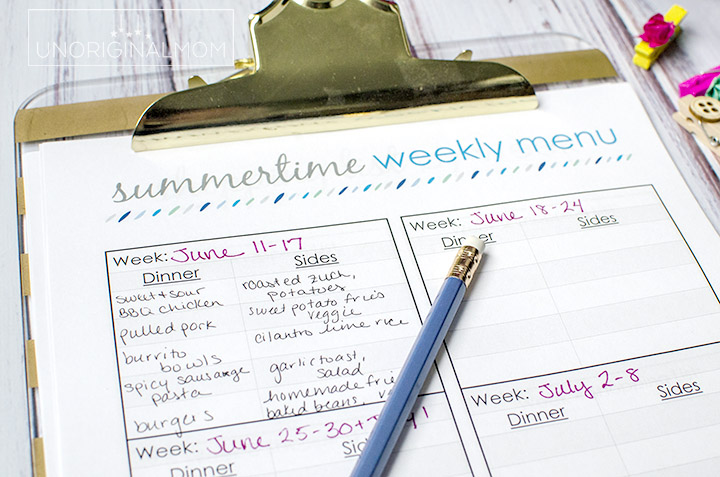 UNORIGINALMOM
summertime weekly menu
Week: June 11-17
Dinner Sides
sweet + sour BBQ chicken
roasted zuch, potatoes
pulled pork
sweet potato fries veggie
burrito bowls
cilantro lime rice
spicy sausage pasta
garlic toast, salad
burgers
homemade fries baked beans,
Week: June 18-24
Dinner Sides
Week: June 25-30 +
Dinner
Week: July 2-8
Dinner Sides